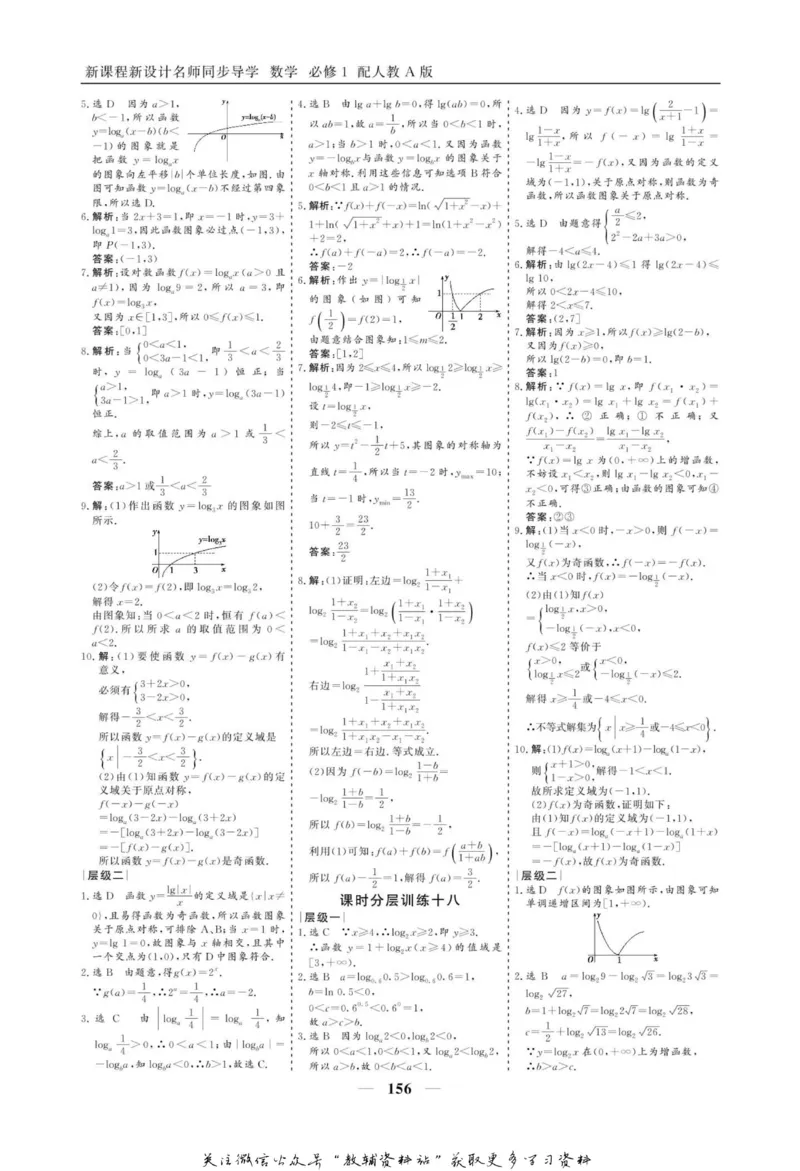 新课程新设计名师同步导学 数学 必修1 配人教A版
5.选D 因为a>1,
b<-1,所以函数
y=logₐ(x-b)(b<
-1)的图象就是
把函数 y=logₐx
的图象向左平移|b|个单位长度,如图.由
图可知函数y=logₐ(x-b)不经过第四象
限,所以选D.
y y=logₐ(x-b)
O x
6.解析:当2x+3=1,即x=-1时,y=3+
logₐ1=3,因此函数图象必过点(-1,3),
即P(-1,3).
答案:(-1,3)
7.解析:设对数函数f(x)=logₐx(a>0且
a≠1),因为logₐ9=2,所以a=3,即
f(x)=log₃x,
又因为x∈[1,3],所以0≤f(x)≤1.
答案:[0,1]
8.解析:当{0<a<1, 0<3a-1<1, 即 1/3<a<2/3
时, y = logₐ(3a-1) 恒正;当
{a>1, 3a-1>1, 即a>1时,y=logₐ(3a-1)
恒正.
综上,a的取值范围为a>1或 1/3<
a<2/3.
答案:a>1或1/3<a<2/3
9.解:(1)作出函数y=log₃x的图象如图
所示.
y y=log₃x
1
O 1 3 x
(2)令f(x)=f(2),即log₃x=log₃2,
解得x=2.
由图象知:当0<a<2时,恒有f(a)<
f(2).所以所求a的取值范围为0<
a<2.
10.解:(1)要使函数y=f(x)-g(x)有
意义,
必须有{3+2x>0, 3-2x>0,
解得-3/2<x<3/2.
所以函数y=f(x)-g(x)的定义域是
{x|-3/2<x<3/2}.
(2)由(1)知函数y=f(x)-g(x)的定
义域关于原点对称,
f(-x)-g(-x)
=logₐ(3-2x)-logₐ(3+2x)
=-[logₐ(3+2x)-logₐ(3-2x)]
=-[f(x)-g(x)],
所以函数y=f(x)-g(x)是奇函数.
|层级二|
1.选D 函数y=lg|x|/x的定义域是{x|x≠
0},且易得函数为奇函数,所以函数图象
关于原点对称,可排除A、B;当x=1时,
y=lg 1=0,故图象与x轴相交,且其中
一个交点为(1,0),只有D中图象符合.
2.选B 由题意,得g(x)=2ˣ.
∵g(a)=1/4,∴2ᵃ=1/4,∴a=-2.
3.选C 由|logₐ 1/4|=logₐ 1/4,知
logₐ 1/4>0,∴0<a<1;由|log_b a|=
-log_b a,知log_b a<0,∴b>1,故选C.
4.选B 由lg a+lg b=0,得lg(ab)=0,所
以ab=1,故a=1/b,所以当0<b<1时,
a>1;当b>1时,0<a<1.又因为函数
y=-log_b x与函数y=log_b x的图象关于
x轴对称.利用这些信息可知选项B符合
0<b<1且a>1的情况.
5.解析:∵f(x)+f(-x)=ln(√(1+x²)-x)+
1+ln(√(1+x²)+x)+1=ln(1+x²-x²)
+2=2,
∴f(a)+f(-a)=2,∴f(-a)=-2.
答案:-2
6.解析:作出y=|log_{1/2} x|
的图象(如图)可知
f(1/2)=f(2)=1,
由题意结合图象知:1≤m≤2.
y
1
O 1/2 1 2 x
答案:[1,2]
7.解析:因为2≤x≤4,所以log_{1/2} 2≥log_{1/2} x≥
log_{1/2} 4,即-1≥log_{1/2} x≥-2.
设t=log_{1/2} x,
则-2≤t≤-1,
所以y=t²-1/2 t+5,其图象的对称轴为
直线t=1/4,所以当t=-2时,y_max=10;
当t=-1时,y_min=13/2.
10+3/2=23/2.
答案:23/2
8.解:(1)证明:左边=log₂ (1+x₁)/(1-x₁)+
log₂ (1+x₂)/(1-x₂)=log₂((1+x₁)/(1-x₁)·(1+x₂)/(1-x₂))
=log₂ (1+x₁+x₂+x₁x₂)/(1-x₁-x₂+x₁x₂).
右边=log₂ (1+(x₁+x₂)/(1+x₁x₂))/(1-(x₁+x₂)/(1+x₁x₂))
=log₂ (1+x₁+x₂+x₁x₂)/(1+x₁x₂-x₁-x₂).
所以左边=右边.等式成立.
(2)因为f(-b)=log₂ (1-b)/(1+b)=
-log₂ (1+b)/(1-b)=1/2,
所以f(b)=log₂ (1+b)/(1-b)=-1/2,
利用(1)可知:f(a)+f(b)=f((a+b)/(1+ab)),
所以f(a)-1/2=1,解得f(a)=3/2.
课时分层训练十八
|层级一|
1.选C ∵x≥4,∴log₂x≥2,即y≥3.
∴函数y=1+log₂x(x≥4)的值域是
[3,+∞).
2.选B a=log₀.₆0.5>log₀.₆0.6=1,
b=ln 0.5<0,
0<c=0.6^0.5<0.6⁰=1,
故a>c>b.
3.选B 因为logₐ2<0,log_b 2<0,
所以0<a<1,0<b<1,又logₐ2<log_b 2,
所以a>b,故0<b<a<1.
4.选D 因为y=f(x)=lg(2/(x+1)-1)=
lg (1-x)/(1+x),所以f(-x)=lg (1+x)/(1-x)=
-lg (1-x)/(1+x)=-f(x),又因为函数的定义
域为(-1,1),关于原点对称,则函数为奇
函数,所以函数图象关于原点对称.
5.选D 由题意得{a/2≤2, 2²-2a+3a>0,
解得-4<a≤4.
6.解析:由lg(2x-4)≤1得lg(2x-4)≤
lg 10,
所以0<2x-4≤10,
解得2<x≤7.
答案:(2,7]
7.解析:因为x≥1,所以f(x)≥lg(2-b),
又因为f(x)≥0,
所以lg(2-b)=0,即b=1.
答案:1
8.解析:∵f(x)=lg x,即f(x₁·x₂)=
lg(x₁·x₂)=lg x₁+lg x₂=f(x₁)+
f(x₂),∴②正确;①不正确;又
(f(x₁)-f(x₂))/(x₁-x₂)=(lg x₁-lg x₂)/(x₁-x₂),
∵f(x)=lg x为(0,+∞)上的增函数,
不妨设x₁<x₂,则lg x₁-lg x₂<0,x₁-
x₂<0,可得③正确;由函数的图象可知④
不正确.
答案:②③
9.解:(1)当x<0时,-x>0,则f(-x)=
log_{1/2}(-x),
又f(x)为奇函数,∴f(-x)=-f(x).
∴当x<0时,f(x)=-log_{1/2}(-x).
(2)由(1)知f(x)
={log_{1/2} x,x>0, -log_{1/2}(-x),x<0,
f(x)≤2等价于
{x>0, log_{1/2} x≤2或{x<0, -log_{1/2}(-x)≤2.
解得x≥1/4或-4≤x<0.
∴不等式解集为{x|x≥1/4或-4≤x<0}.
10.解:(1)f(x)=logₐ(x+1)-logₐ(1-x),
则{x+1>0, 1-x>0,解得-1<x<1.
故所求定义域为(-1,1).
(2)f(x)为奇函数,证明如下:
由(1)知f(x)的定义域为(-1,1),
且f(-x)=logₐ(-x+1)-logₐ(1+x)
=-[logₐ(x+1)-logₐ(1-x)]
=-f(x),故f(x)为奇函数.
|层级二|
1.选D f(x)的图象如图所示,由图象可知
单调递增区间为[1,+∞).
y
O 1 x
2.选B a=log₂9-log₂√3=log₂3√3=
log₂√27,
b=1+log₂√7=log₂2√7=log₂√28,
c=1/2+log₂√13=log₂√26.
∵y=log₂x在(0,+∞)上为增函数,
∴b>a>c.
156
关注微信公众号“教辅资料站”获取更多学习资料